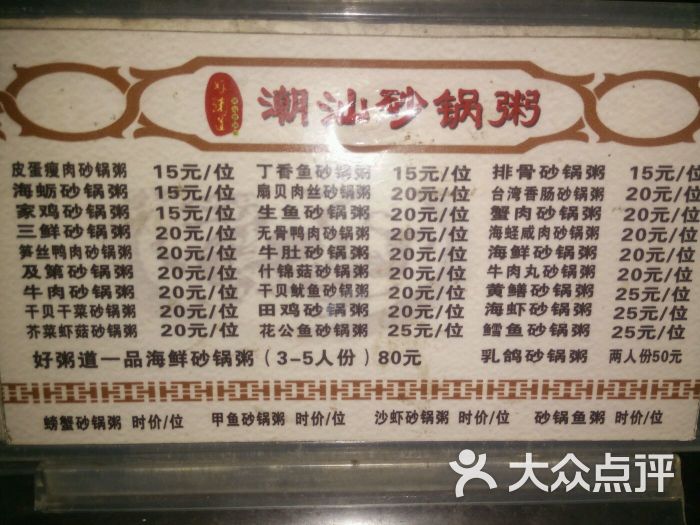 潮汕砂锅粥
皮蛋瘦肉砂锅粥 15元/位 丁香鱼砂锅粥 15元/位 排骨砂锅粥 15元/位
海蛎砂锅粥 15元/位 扇贝肉丝砂锅粥 20元/位 台湾香肠砂锅粥 20元/位
家鸡砂锅粥 15元/位 生鱼砂锅粥 20元/位 蟹肉砂锅粥 20元/位
三鲜砂锅粥 20元/位 无骨鸭肉砂锅粥 20元/位 海蛏咸肉砂锅粥 20元/位
笋丝鸭肉砂锅粥 20元/位 牛肚砂锅粥 20元/位 海鲜砂锅粥 20元/位
及第砂锅粥 20元/位 什锦菇砂锅粥 20元/位 牛肉丸砂锅粥 20元/位
牛肉砂锅粥 20元/位 干贝鱿鱼砂锅粥 20元/位 黄鳝砂锅粥 25元/位
干贝干菜砂锅粥 20元/位 田鸡砂锅粥 20元/位 海虾砂锅粥 25元/位
芥菜虾菇砂锅粥 20元/位 花公鱼砂锅粥 25元/位 鳕鱼砂锅粥 25元/位
好粥道一品海鲜砂锅粥(3-5人份)80元 乳鸽砂锅粥 两人份50元
螃蟹砂锅粥 时价/位 甲鱼砂锅粥 时价/位 沙虾砂锅粥 时价/位 砂锅鱼粥 时价/位
大众点评